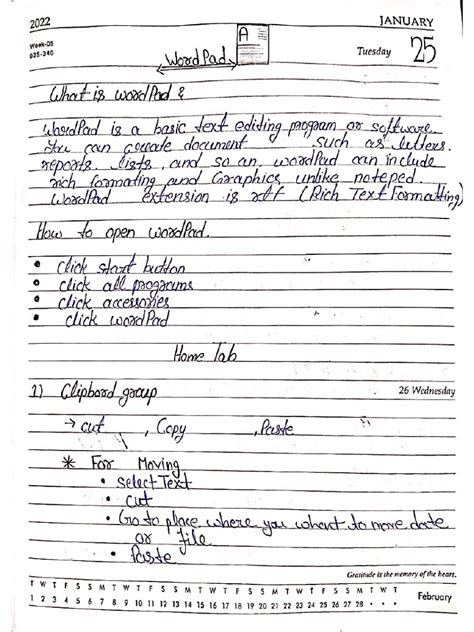 2022
JANUARY
Week-05
025-340
A
Tuesday 25
WordPad
What is wordPad ?
WordPad is a basic text editing program or software.
You can create document such as letters.
reports. lists, and so an, wordPad can include
rich formating and Graphics unlike noteped.
WordPad extension is rtf (Rich Text Formatting)
How to open wordPad.
• Click start button
• click all programs
• click accessories
• click wordPad
Home Tab
1) Clipbord group
26 Wednesday
→ cut , Copy , Paste
* For Moving
• select Text
• cut
• Go to place where you whant to move date
or file
• Paste
Gratitude is the memory of the heart.
T W T F S S M T W T F S S M T W T F S S M T W T F S S M
1 2 3 4 5 6 7 8 9 10 11 12 13 14 15 16 17 18 19 20 21 22 23 24 25 26 27 28 • • •
February